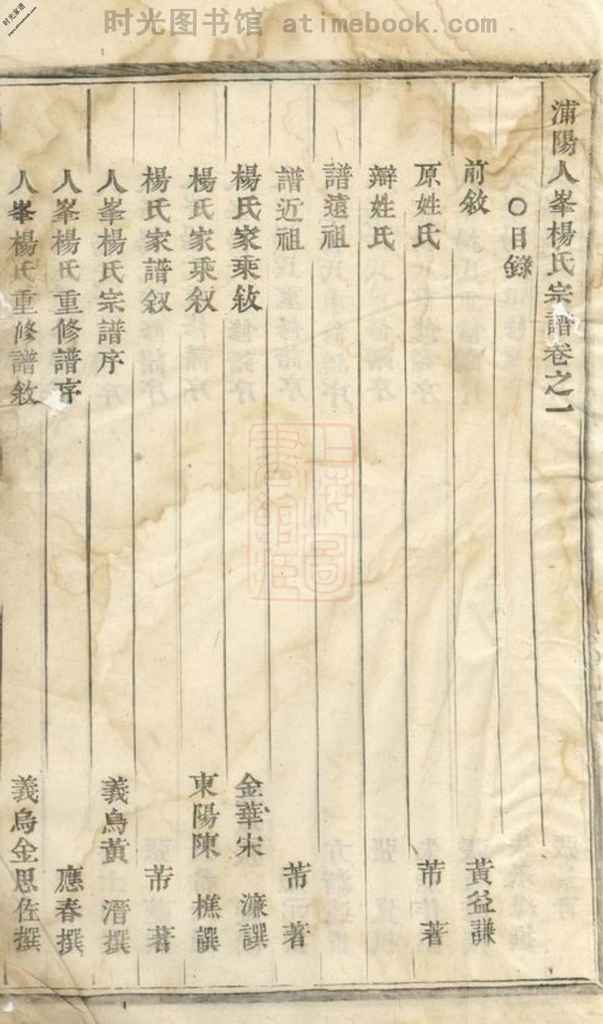 时光图书馆 atimebook.com
时光家谱
浦陽人峯楊氏宗譜卷之一
〇目錄
前敘 黃益謙
原姓氏 芾著
辯姓氏
譜遠祖
譜近祖 芾著
楊氏家乘敘 金華宋濂譔
楊氏家乘敘 東陽陳樵譔
楊氏家譜敘 芾著
人峯楊氏宗譜序 義烏黃溍撰
人峯楊氏重修譜序 應春撰
人峯楊氏重修譜敘 義烏金思佐撰